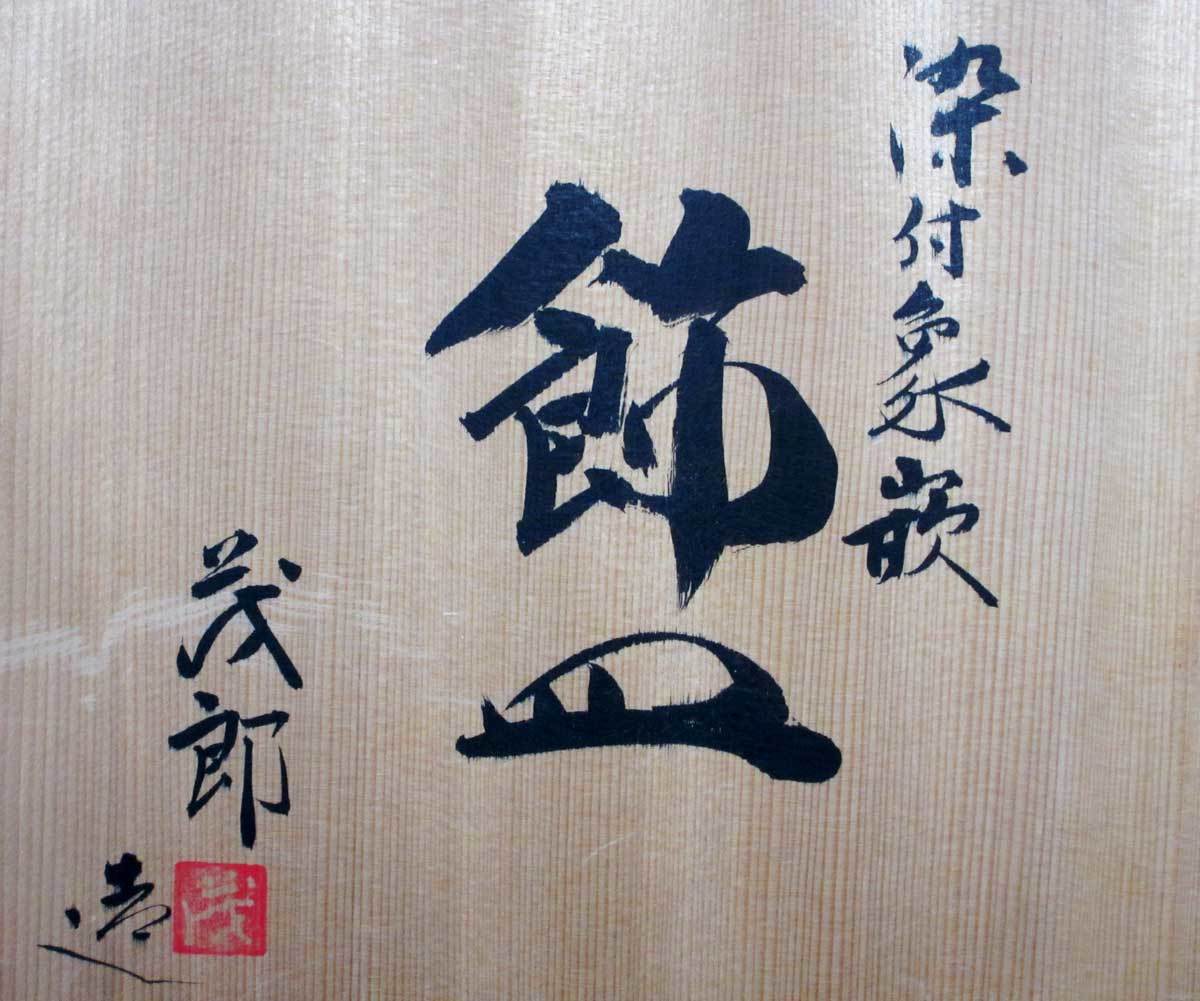 染付象嵌
飾皿
茂郎
造
茂